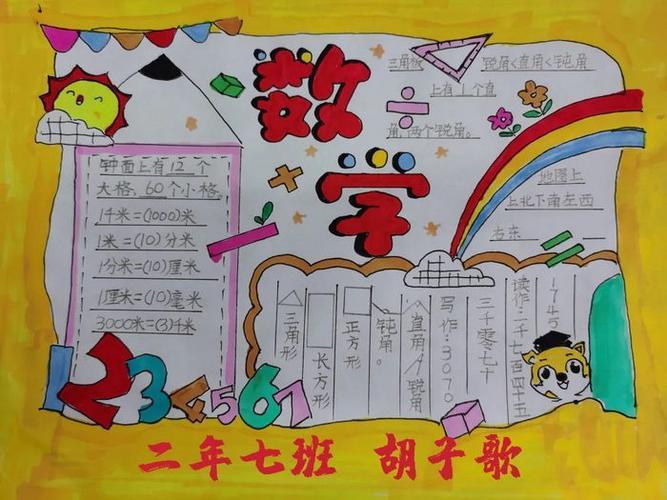 数学
三角板 锐角<直角<钝角
上有1个直
角,两个锐角。
钟面上有12个
大格,60个小格,
1千米=(1000)米
1米=(10)分米
1分米=(10)厘米
1厘米=(10)毫米
3000米=(3)千米
地图上
上北下南左西
右东
三角形
长方形
正方形
钝角。
直角 锐角
写作:3070
三千零七十
读作:一千七百四十五
1745
1234567
二年七班 胡子歌